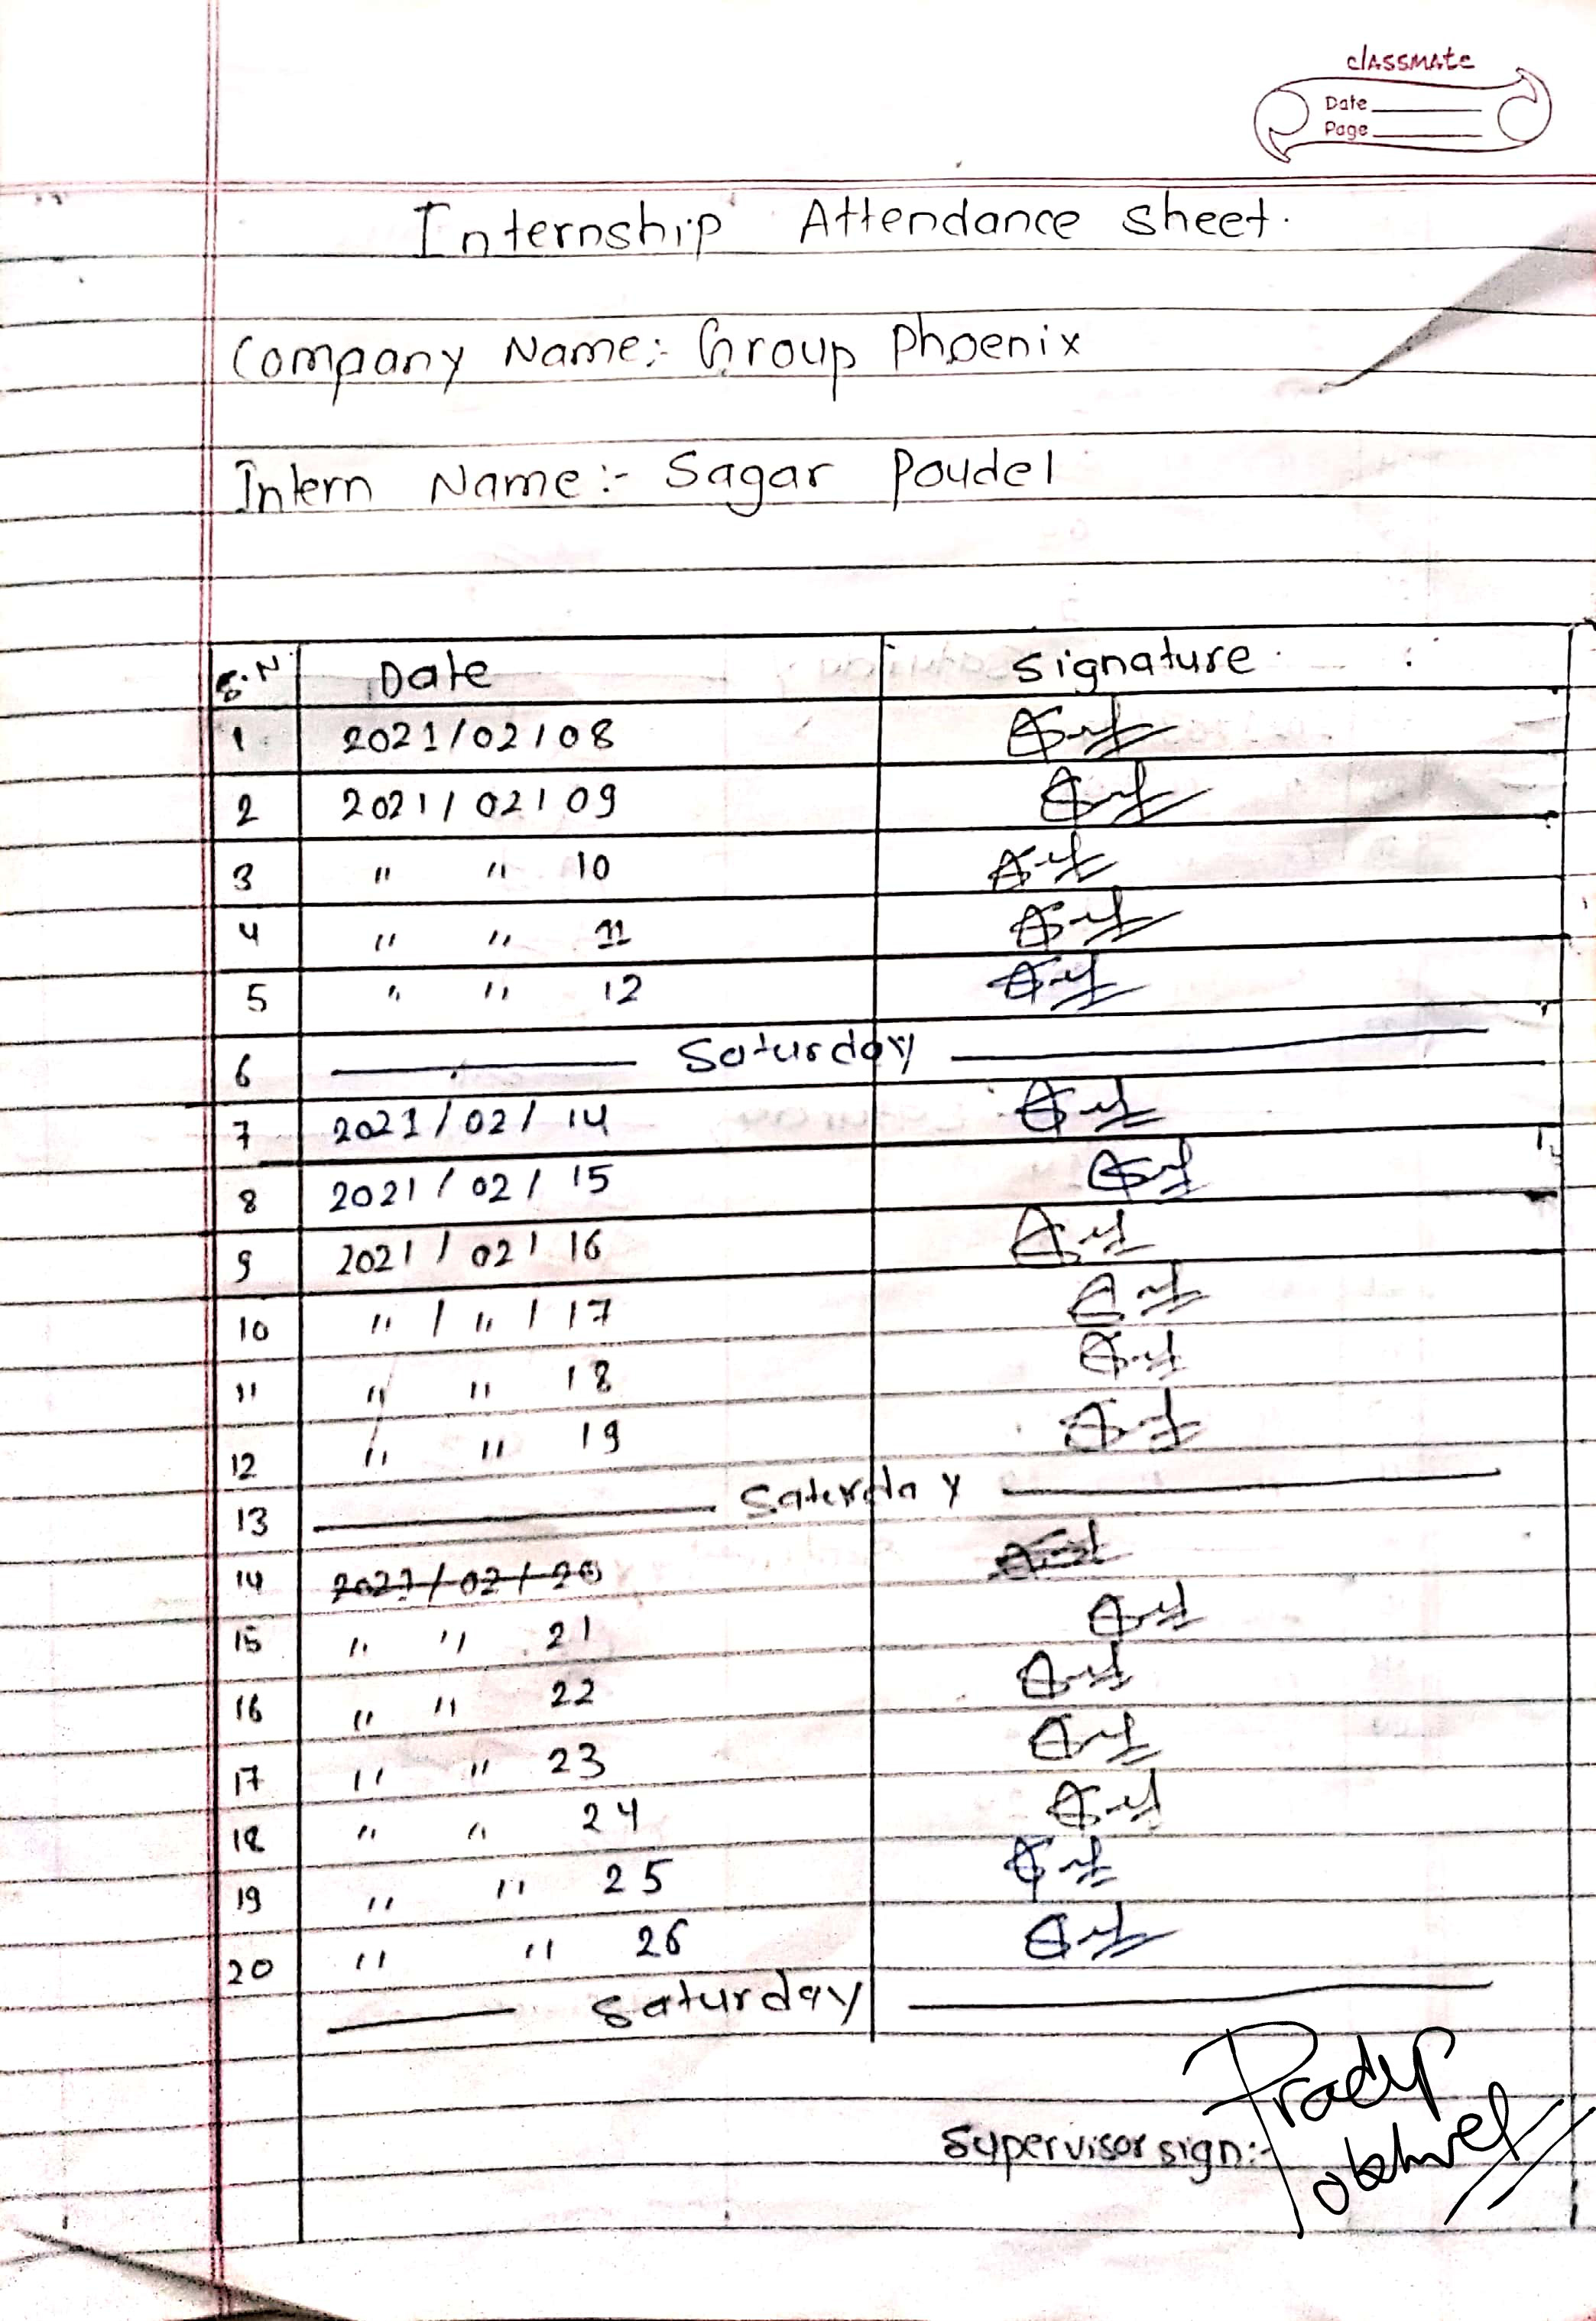 classmate
Date
Page
Internship Attendance sheet.
Company Name:- Group Phoenix
Intern Name:- Sagar Poudel
S.N Date signature
1 2021/02/08
2 2021/02/09
3 " " 10
4 " " 11
5 " " 12
6 Saturday
7 2021/02/14
8 2021/02/15
9 2021/02/16
10 " / " / 17
11 " " 18
12 " " 19
13 Saterday
14 2021/02/20
15 " " 21
16 " " 22
17 " " 23
18 " " 24
19 " " 25
20 " " 26
Saturday
Supervisor sign:- Pradip